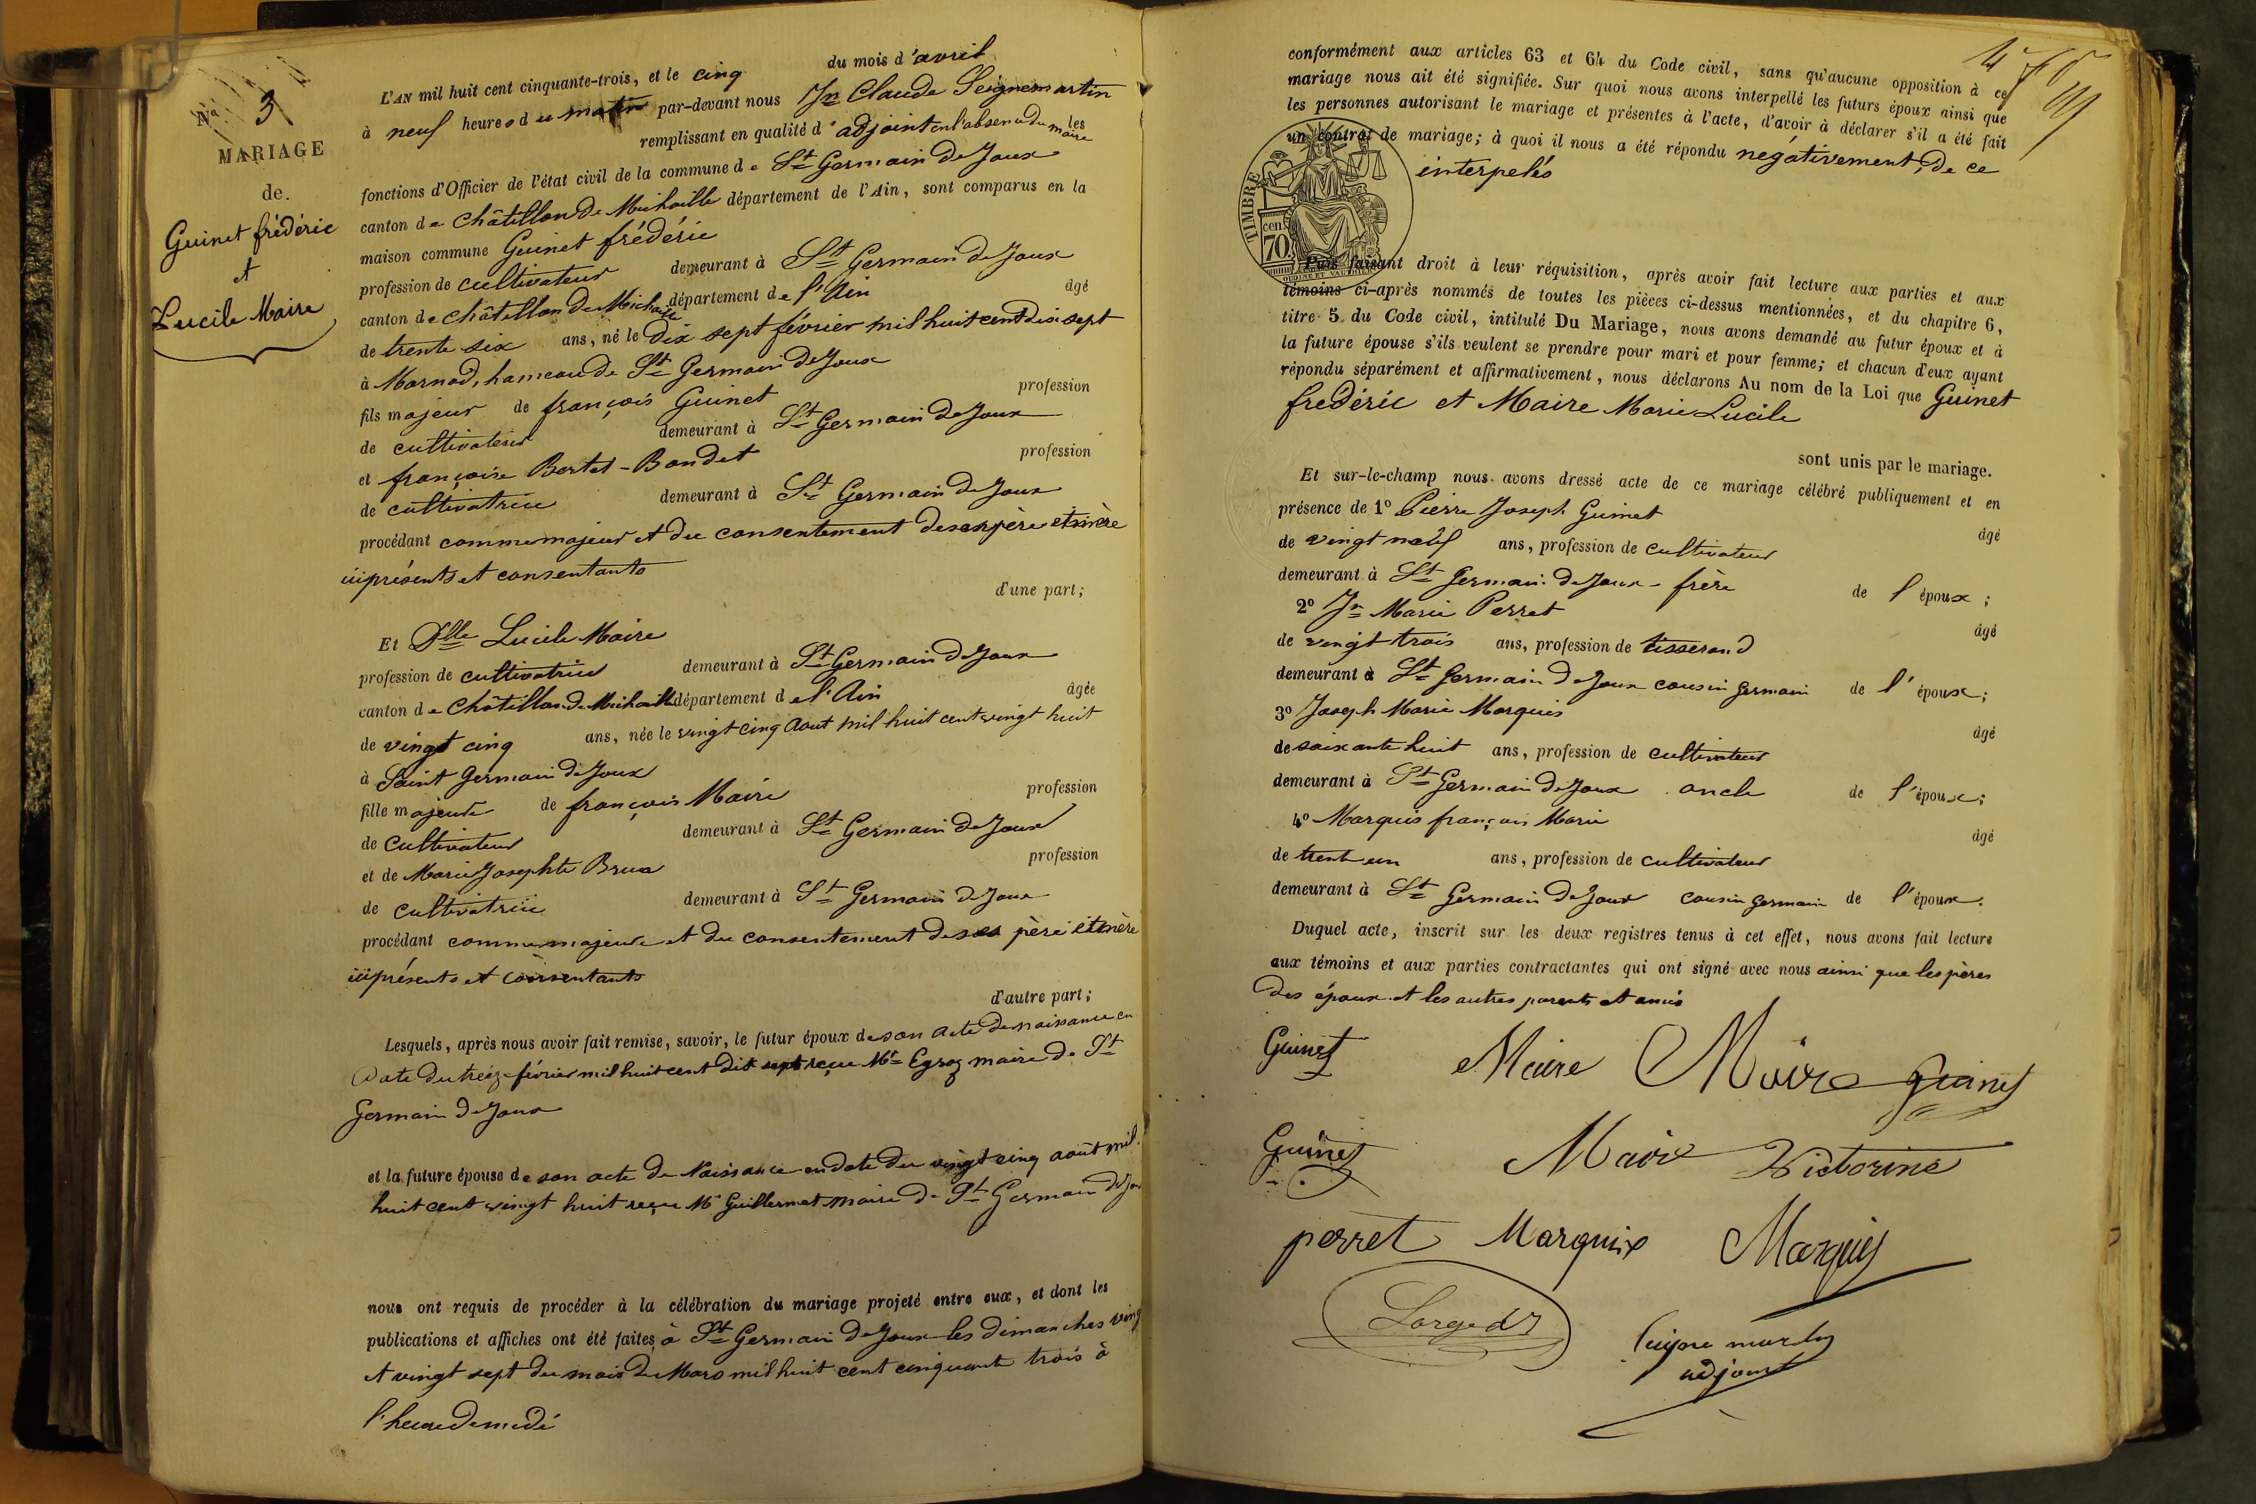 Nº 3
MARIAGE
de
Guinet frédéric
et
Lucile Maire
L'AN mil huit cent cinquante-trois, et le cinq du mois d'avril
à neuf heures du matin par-devant nous Jn Claude Seignemartin
remplissant en qualité d'adjoint en l'absence du maire les
fonctions d'Officier de l'état civil de la commune de St Germain de Joux
canton de Châtillon de Michaille département de l'Ain, sont comparus en la
maison commune Guinet frédéric
profession de cultivateur demeurant à St Germain de Joux
canton de Châtillon de Michaille département de l'Ain âgé
de trente six ans, né le dix sept février mil huit cent dix sept
à Marnod, hameau de St Germain de Joux
fils majeur de françois Guinet profession
de cultivateur demeurant à St Germain de Joux
et françoise Bertet-Bondet profession
de cultivatrice demeurant à St Germain de Joux
procédant comme majeur et du consentement de ses père et mère
ici présents et consentants
d'une part;
Et Dlle Lucile Maire
profession de cultivatrice demeurant à St Germain de Joux
canton de Châtillon de Michaille département de l'Ain âgée
de vingt cinq ans, née le vingt cinq aout mil huit cent vingt huit
à Saint Germain de Joux
fille majeure de françois Maire profession
de cultivateur demeurant à St Germain de Joux
et de Marie Josephte Brun profession
de cultivatrice demeurant à St Germain de Joux
procédant comme majeure et du consentement de ses père et mère
ici présents et consentants
d'autre part;
Lesquels, après nous avoir fait remise, savoir, le futur époux de son acte de naissance en
date du treize février mil huit cent dix sept reçu Mr Egroz maire de St
Germain de Joux
et la future épouse de son acte de Naissance en date du vingt cinq août mil
huit cent vingt huit reçu Mr Guillermet maire de St Germain de Joux
nous ont requis de procéder à la célébration du mariage projeté entre eux, et dont les
publications et affiches ont été faites à St Germain de Joux les dimanches vingt
et vingt sept du mois de Mars mil huit cent cinquante trois à
l'heure de midi
conformément aux articles 63 et 64 du Code civil, sans qu'aucune opposition à ce
mariage nous ait été signifiée. Sur quoi nous avons interpellé les futurs époux ainsi que
les personnes autorisant le mariage et présentes à l'acte, d'avoir à déclarer s'il a été fait
un contrat de mariage; à quoi il nous a été répondu negativement, de ce
interpelés
TIMBRE
70 cen.
OUDINE ET VAUTHIER
Puis faisant droit à leur réquisition, après avoir fait lecture aux parties et aux
témoins ci-après nommés de toutes les pièces ci-dessus mentionnées, et du chapitre 6,
titre 5 du Code civil, intitulé Du Mariage, nous avons demandé au futur époux et à
la future épouse s'ils veulent se prendre pour mari et pour femme; et chacun d'eux ayant
répondu séparément et affirmativement, nous déclarons Au nom de la Loi que Guinet
frédéric et Maire Marie Lucile
sont unis par le mariage.
Et sur-le-champ nous avons dressé acte de ce mariage célébré publiquement et en
présence de 1º Pierre Joseph Guinet âgé
de vingt neuf ans, profession de cultivateur
demeurant à St Germain de Joux - frère de l'époux;
2º Jn Marie Perret âgé
de vingt trois ans, profession de tisserand
demeurant à St Germain de Joux cousin germain de l'époux;
3º Joseph Marie Marquis âgé
de soixante huit ans, profession de cultivateur
demeurant à St Germain de Joux oncle de l'époux;
4º Marquis françois Marie âgé
de trente un ans, profession de cultivateur
demeurant à St Germain de Joux cousin germain de l'époux.
Duquel acte, inscrit sur les deux registres tenus à cet effet, nous avons fait lecture
aux témoins et aux parties contractantes qui ont signé avec nous ainsi que les pères
des époux et les autres parents et amis
Guinet Maire Maire Guinet
Guinet Maire Victorine
perret Marquis Marquis
Seignemartin
adjoint